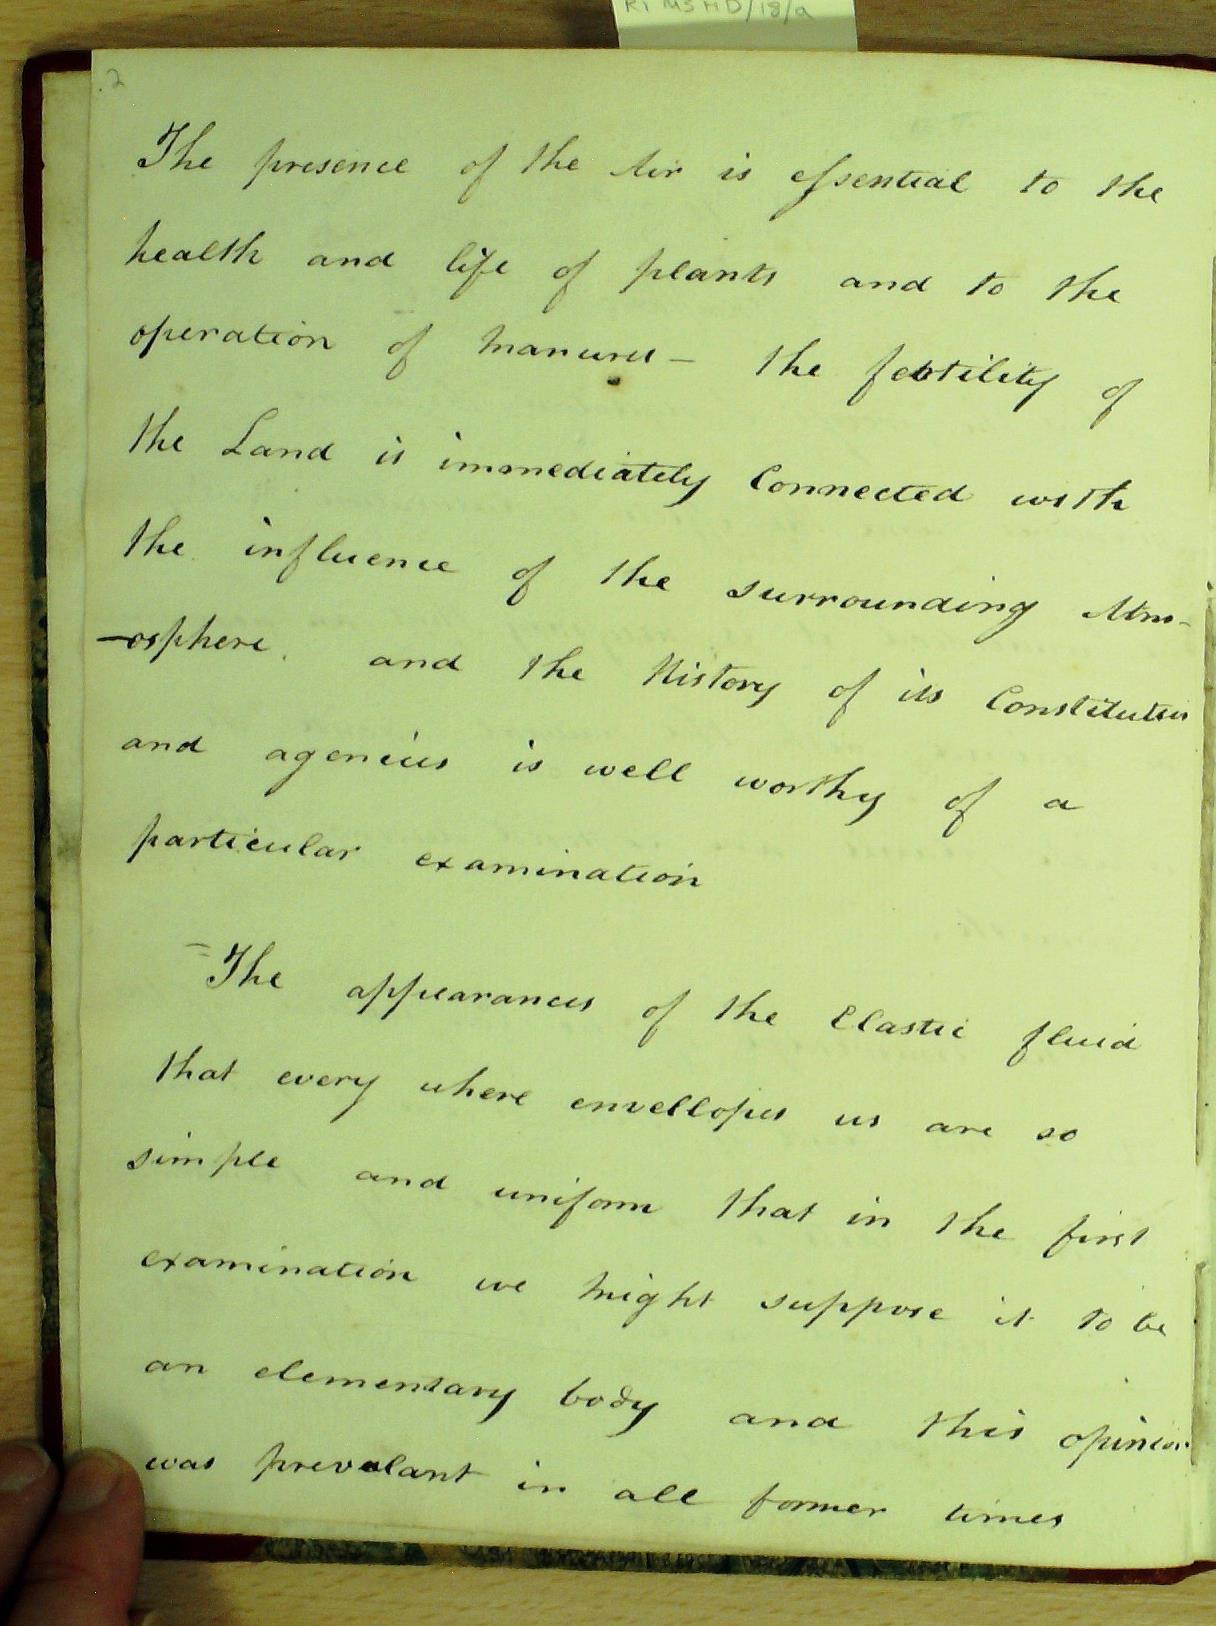 RI MS HD/18/a
2
The presence of the Air is essential to the
health and life of plants and to the
operation of manures — the fertility of
the Land is immediately Connected with
the influence of the surrounding Atmo-
-osphere. and the History of its Constitution
and agencies is well worthy of a
particular examination
= The appearances of the Elastic fluid
that every where envellopes us are so
simple and uniform that in the first
examination we might suppose it to be
an elementary body and this opinion
was prevalant in all former times